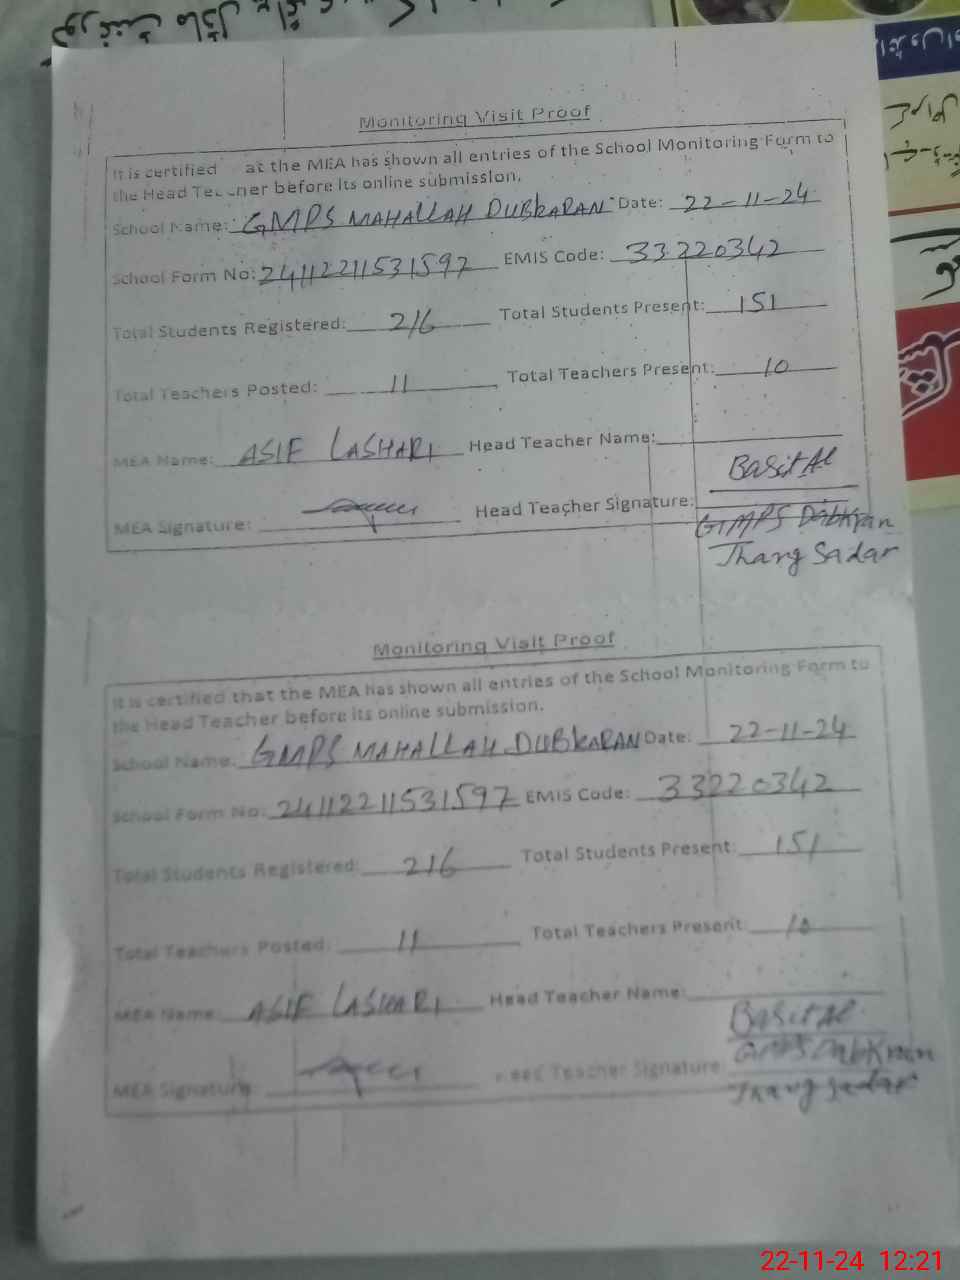 Monitoring Visit Proof
It is certified at the MEA has shown all entries of the School Monitoring Form to
the Head Teacher before its online submission.
School Name: GMPS MAHALLAH DUBKARAN Date: 22-11-24
School Form No: 24112211531597 EMIS Code: 33220342
Total Students Registered: 216 Total Students Present: 151
Total Teachers Posted: 11 Total Teachers Present: 10
MEA Name: ASIF LASHARI Head Teacher Name:
Basit Al
MEA Signature: Head Teacher Signature:
GMPS Dabkran
Jhang Sadar
Monitoring Visit Proof
It is certified that the MEA has shown all entries of the School Monitoring Form to
the Head Teacher before its online submission.
School Name: GMPS MAHALLAH DUBKARAN Date: 22-11-24
School Form No: 24112211531597 EMIS Code: 33220342
Total Students Registered: 216 Total Students Present: 151
Total Teachers Posted: 11 Total Teachers Present: 10
MEA Name ASIF LASHARI Head Teacher Name:
Basit Al
GMPS Dabkran
MEA Signature Head Teacher Signature
Jhang Sadar
22-11-24 12:21